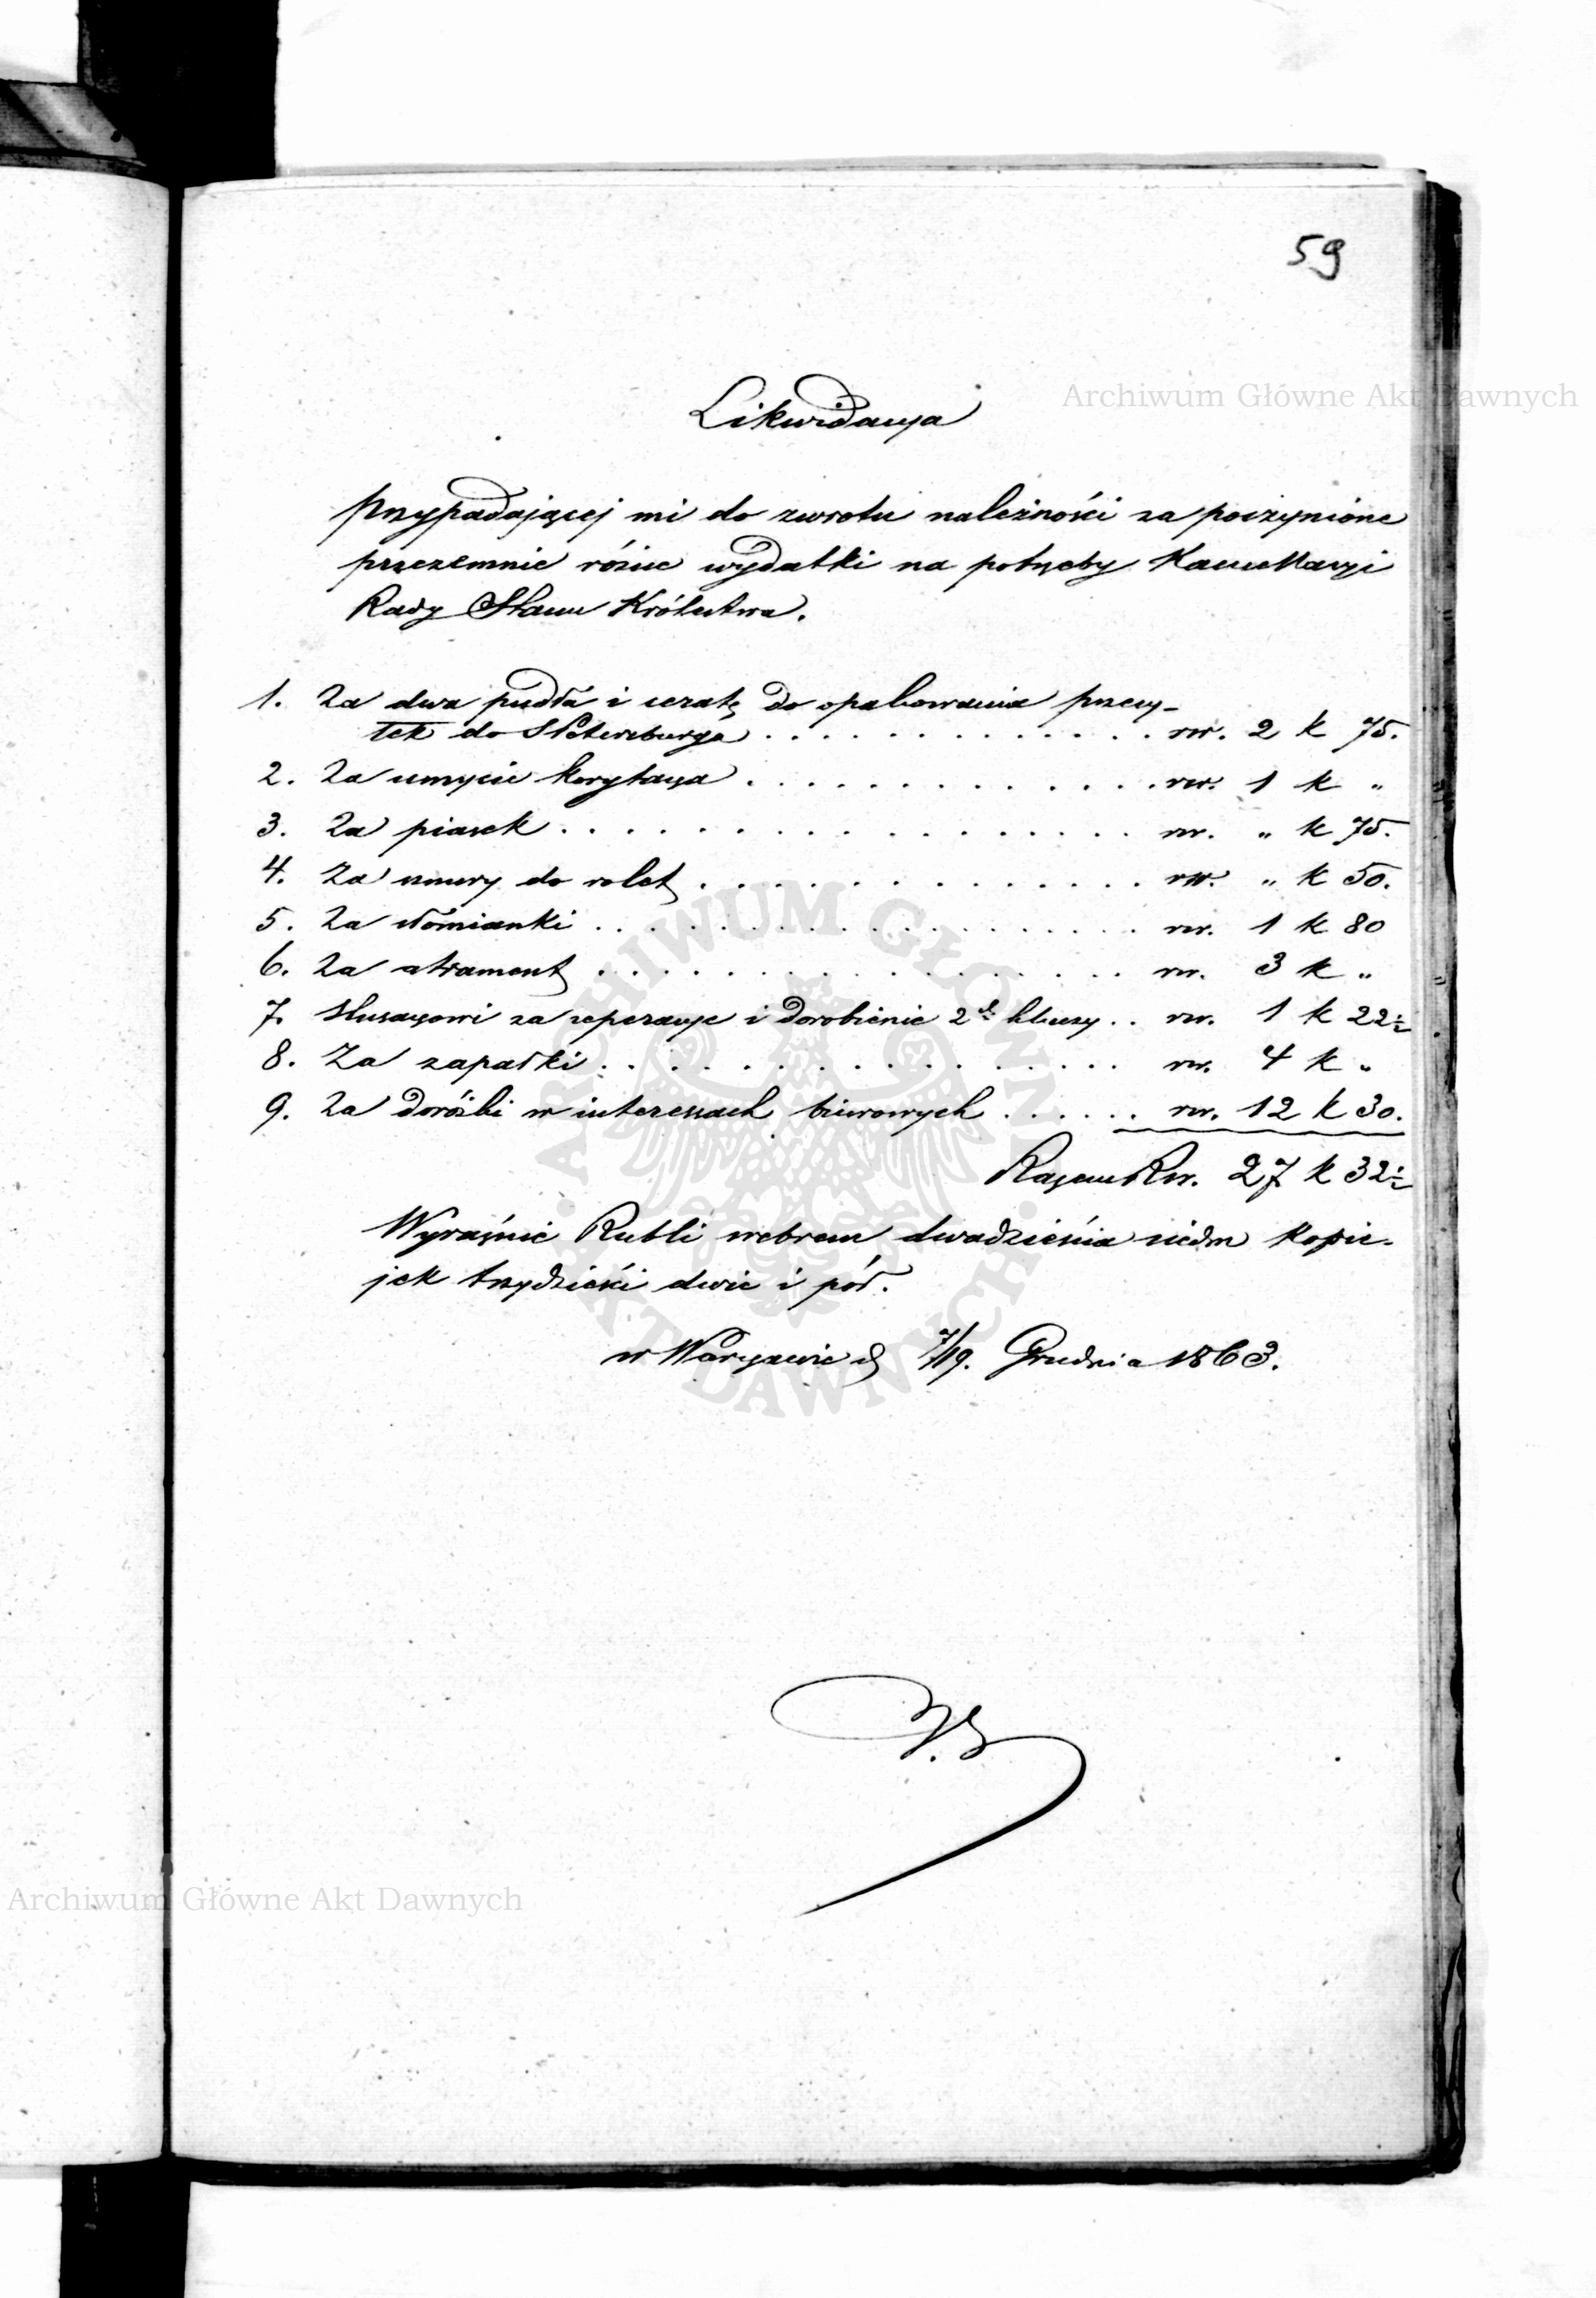 59
Archiwum Główne Akt Dawnych
Likwidacya
Przypadającej mi do zwrotu należności za poczynione
przezemnie różne wydatki na potrzeby Kancellaryi
Rady Stanu Królestwa.
1. Za dwa pudła i ceratę do opakowania przesy-
łek do S Petersburga . . . . . . . . . . . . rsr. 2 k 75.
2. Za umycie korytarza . . . . . . . . . . . . rsr. 1 k "
3. Za piasek . . . . . . . . . . . . . . . . rsr. " k 75.
4. Za sznury do rolet . . . . . . . . . . . . . rsr. " k 50.
5. Za słomianki . . . . . . . . . . . . . . . rsr. 1 k 80
6. Za atrament . . . . . . . . . . . . . . . rsr. 3 k "
7. Slusarzowi za reperacye i dorobienie 2ch kluczy . . rsr. 1 k 22½
8. Za zapałki . . . . . . . . . . . . . . . rsr. 4 k "
9. Za dorożki w interessach biurowych . . . . . . rsr. 12 k 30.
Razem Rsr. 27 k 32½
Wyraźnie Rubli srebrem dwadzieścia siedm kopie-
jek trzydzieści dwie i pół.
w Warszawie d 7/19. Grudnia 1863.
ARCHIWUM GŁÓWNE AKT DAWNYCH
Archiwum Główne Akt Dawnych